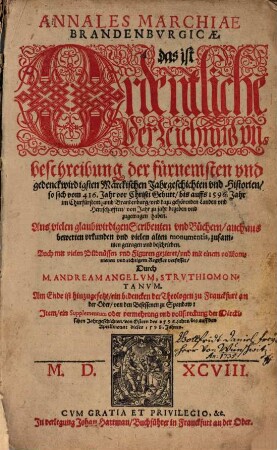 ANNALES MARCHIAE
BRANDENBVRGICÆ,
das ist
Ordentliche
Verzeichnuß vn̄
beschreibung der fürnemsten vnd
gedenckwirdigsten Märckischen Jahrgeschichten vnd Historien/
so sich vom 416. Jahr vor Christi Geburt/ bis auffs 1596. Jahr
im Churfürstenthumb Brandenburg/ vnd dazu gehörenden Landen vnd
Herrschafften/ von Jahr zu Jahr begeben vnd
zugetragen haben.
Aus vielen glaubwirdigen Scribenten vnd Büchern/ auch aus
bewerten vrkunden vnd vielen alten monumentis, zusam-
men getragen vnd beschrieben.
Auch mit vielen Bildnüssen vnd Figuren gezieret/ vnd mit einem
Register verfasset/
Durch
M. ANDREAM ANGELVM, STRVTHIOMON-
TANVM.
Am Ende ist hinzugesetzt/ ein bedencken der Theologen zu Franckfurt an
der Oder/ von den Besessenen zu Spandow:
Item, ein Supplementum oder vermehrung vnd vollstreckung der Märcki-
schen Jahrgeschichten/ von Ostern des 1596. Jahres bis auff den
dieses 1598. Jahres.
M. D. XCVIII.
CVM GRATIA ET PRIVILEGIO, &c.
In verlegung Johan Hartman/ Buchführer in Franckfurt an der Oder.